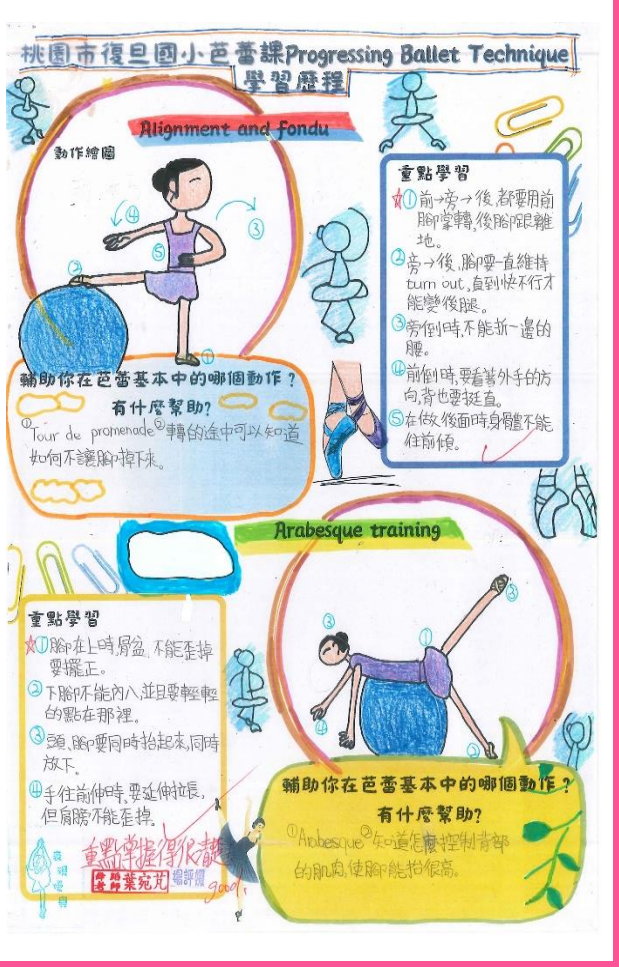 桃園市復旦國小芭蕾課Progressing Ballet Technique
學習歷程
Alignment and Fondu
動作繪圖
④
③
⑤
②
①
重點學習
☆①前→旁→後,都要用前
腳掌轉,後腳跟離
地。
②旁→後,腳要一直維持
turn out,直到快不行才
能變後腿。
③旁倒時,不能折一邊的
腰。
④前倒時,要看著外手的方
向,背也要挺直。
⑤在做後面時身體不能
往前傾。
輔助你在芭蕾基本中的哪個動作?
有什麼幫助?
①Tour de promenade②轉的途中可以知道
如何不讓腳掉下來。
Arabesque training
③
③
①
④
②
重點學習
☆①腳在上時,骨盆不能歪掉
要擺正。
②下腳不能內八,並且要輕輕
的點在那裡。
③頭、腳要同時抬起來,同時
放下。
④手往前伸時,要延伸拉長,
但肩膀不能歪掉。
重點掌握得很
good!
舞蹈老師葉宛芃
表現優良
輔助你在芭蕾基本中的哪個動作?
有什麼幫助?
①Arabesque②知道怎麼控制背部
的肌肉,使腳能抬很高。